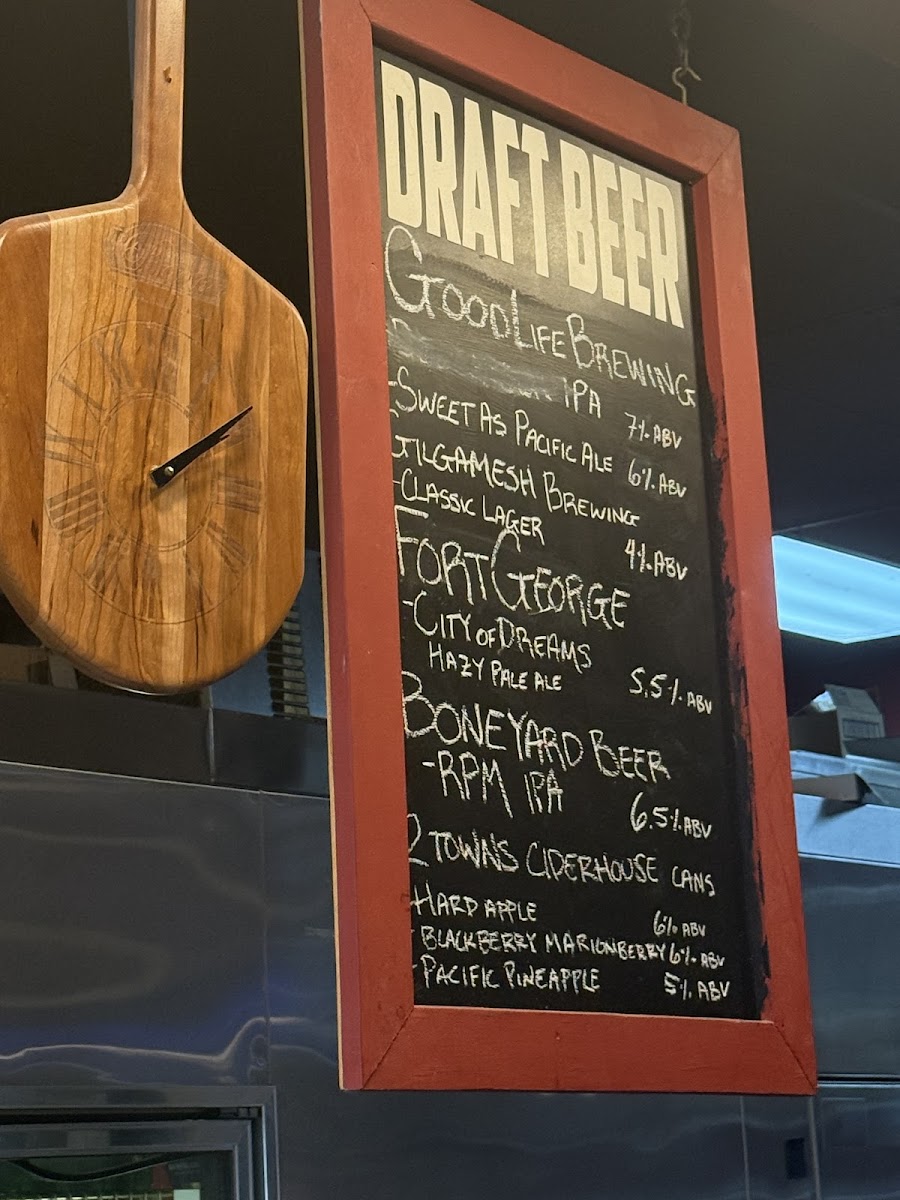 DRAFT BEER
GOODLIFE BREWING
IPA 7% ABV
-SWEET AS PACIFIC ALE 6% ABV
GILGAMESH BREWING
-CLASSIC LAGER 4% ABV
FORT GEORGE
-CITY OF DREAMS
HAZY PALE ALE 5.5% ABV
BONEYARD BEER
-RPM IPA 6.5% ABV
2 TOWNS CIDERHOUSE CANS
-HARD APPLE 6% ABV
-BLACKBERRY MARIONBERRY 6% ABV
-PACIFIC PINEAPPLE 5% ABV